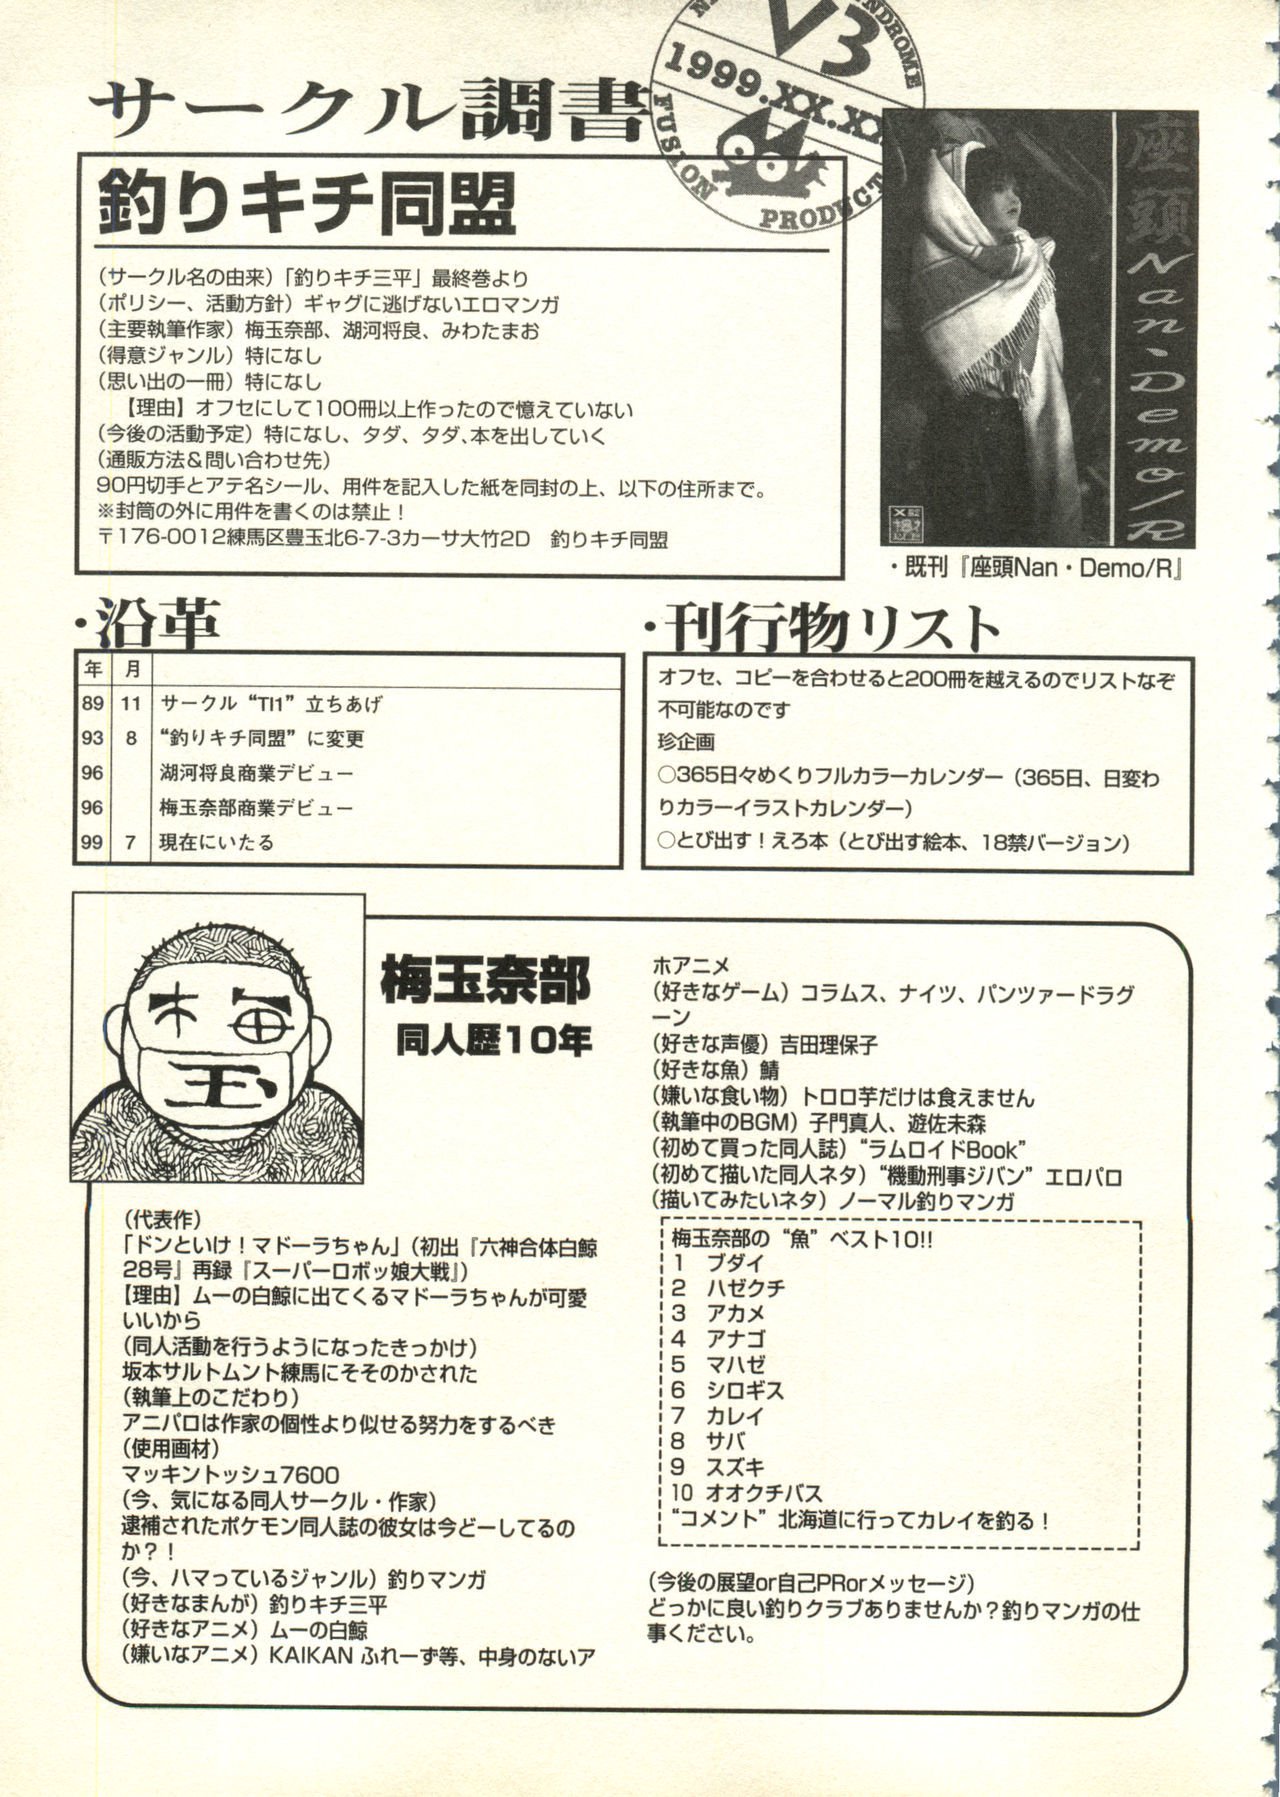 サークル調書
V3
NDROME
1999.XX.XX
FUSION
PRODUCT
釣りキチ同盟
(サークル名の由来)「釣りキチ三平」最終巻より
(ポリシー、活動方針)ギャグに逃げないエロマンガ
(主要執筆作家)梅玉奈部、湖河将良、みわたまお
(得意ジャンル)特になし
(思い出の一冊)特になし
【理由】オフセにして100冊以上作ったので憶えていない
(今後の活動予定)特になし、タダ、タダ、本を出していく
(通販方法&問い合わせ先)
90円切手とアテ名シール、用件を記入した紙を同封の上、以下の住所まで。
※封筒の外に用件を書くのは禁止!
〒176-0012練馬区豊玉北6-7-3カーサ大竹2D 釣りキチ同盟
座頭Nan・Demo/R
・既刊『座頭Nan・Demo/R』
・沿革
年 月
89 11 サークル“TI1”立ちあげ
93 8 “釣りキチ同盟”に変更
96 湖河将良商業デビュー
96 梅玉奈部商業デビュー
99 7 現在にいたる
・刊行物リスト
オフセ、コピーを合わせると200冊を越えるのでリストなぞ
不可能なのです
珍企画
○365日々めくりフルカラーカレンダー(365日、日変わ
りカラーイラストカレンダー)
○とび出す!えろ本(とび出す絵本、18禁バージョン)
梅
玉
梅玉奈部
同人歴10年
(代表作)
「ドンといけ!マドーラちゃん」(初出『六神合体白鯨
28号』再録『スーパーロボッ娘大戦』)
【理由】ムーの白鯨に出てくるマドーラちゃんが可愛
いいから
(同人活動を行うようになったきっかけ)
坂本サルトムント練馬にそそのかされた
(執筆上のこだわり)
アニパロは作家の個性より似せる努力をするべき
(使用画材)
マッキントッシュ7600
(今、気になる同人サークル・作家)
逮補されたポケモン同人誌の彼女は今どーしてるの
か?!
(今、ハマっているジャンル)釣りマンガ
(好きなまんが)釣りキチ三平
(好きなアニメ)ムーの白鯨
(嫌いなアニメ)KAIKAN ふれーず等、中身のないア
ホアニメ
(好きなゲーム)コラムス、ナイツ、パンツァードラグ
ーン
(好きな声優)吉田理保子
(好きな魚)鯖
(嫌いな食い物)トロロ芋だけは食えません
(執筆中のBGM)子門真人、遊佐未森
(初めて買った同人誌)“ラムロイドBook”
(初めて描いた同人ネタ)“機動刑事ジバン”エロパロ
(描いてみたいネタ)ノーマル釣りマンガ
梅玉奈部の“魚”ベスト10!!
1 ブダイ
2 ハゼクチ
3 アカメ
4 アナゴ
5 マハゼ
6 シロギス
7 カレイ
8 サバ
9 スズキ
10 オオクチバス
“コメント”北海道に行ってカレイを釣る!
(今後の展望or自己PRorメッセージ)
どっかに良い釣りクラブありませんか?釣りマンガの仕
事ください。